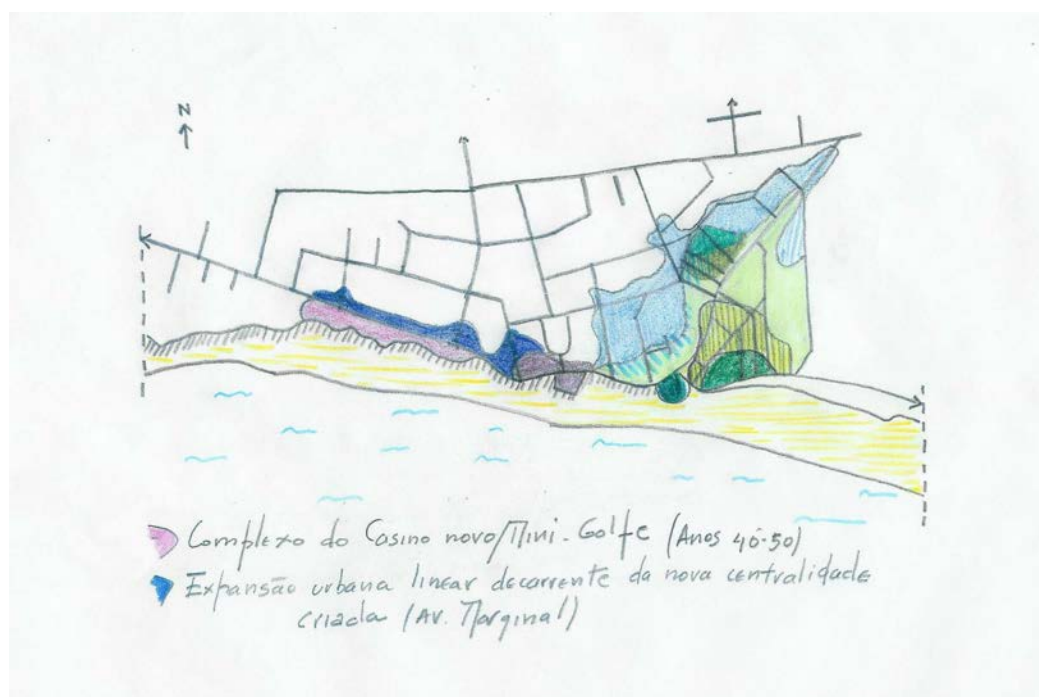 N
Complexo do Casino novo/Mini-Golfe (Anos 40-50)
Expansão urbana linear decorrente da nova centralidade
criada (Av. Marginal)